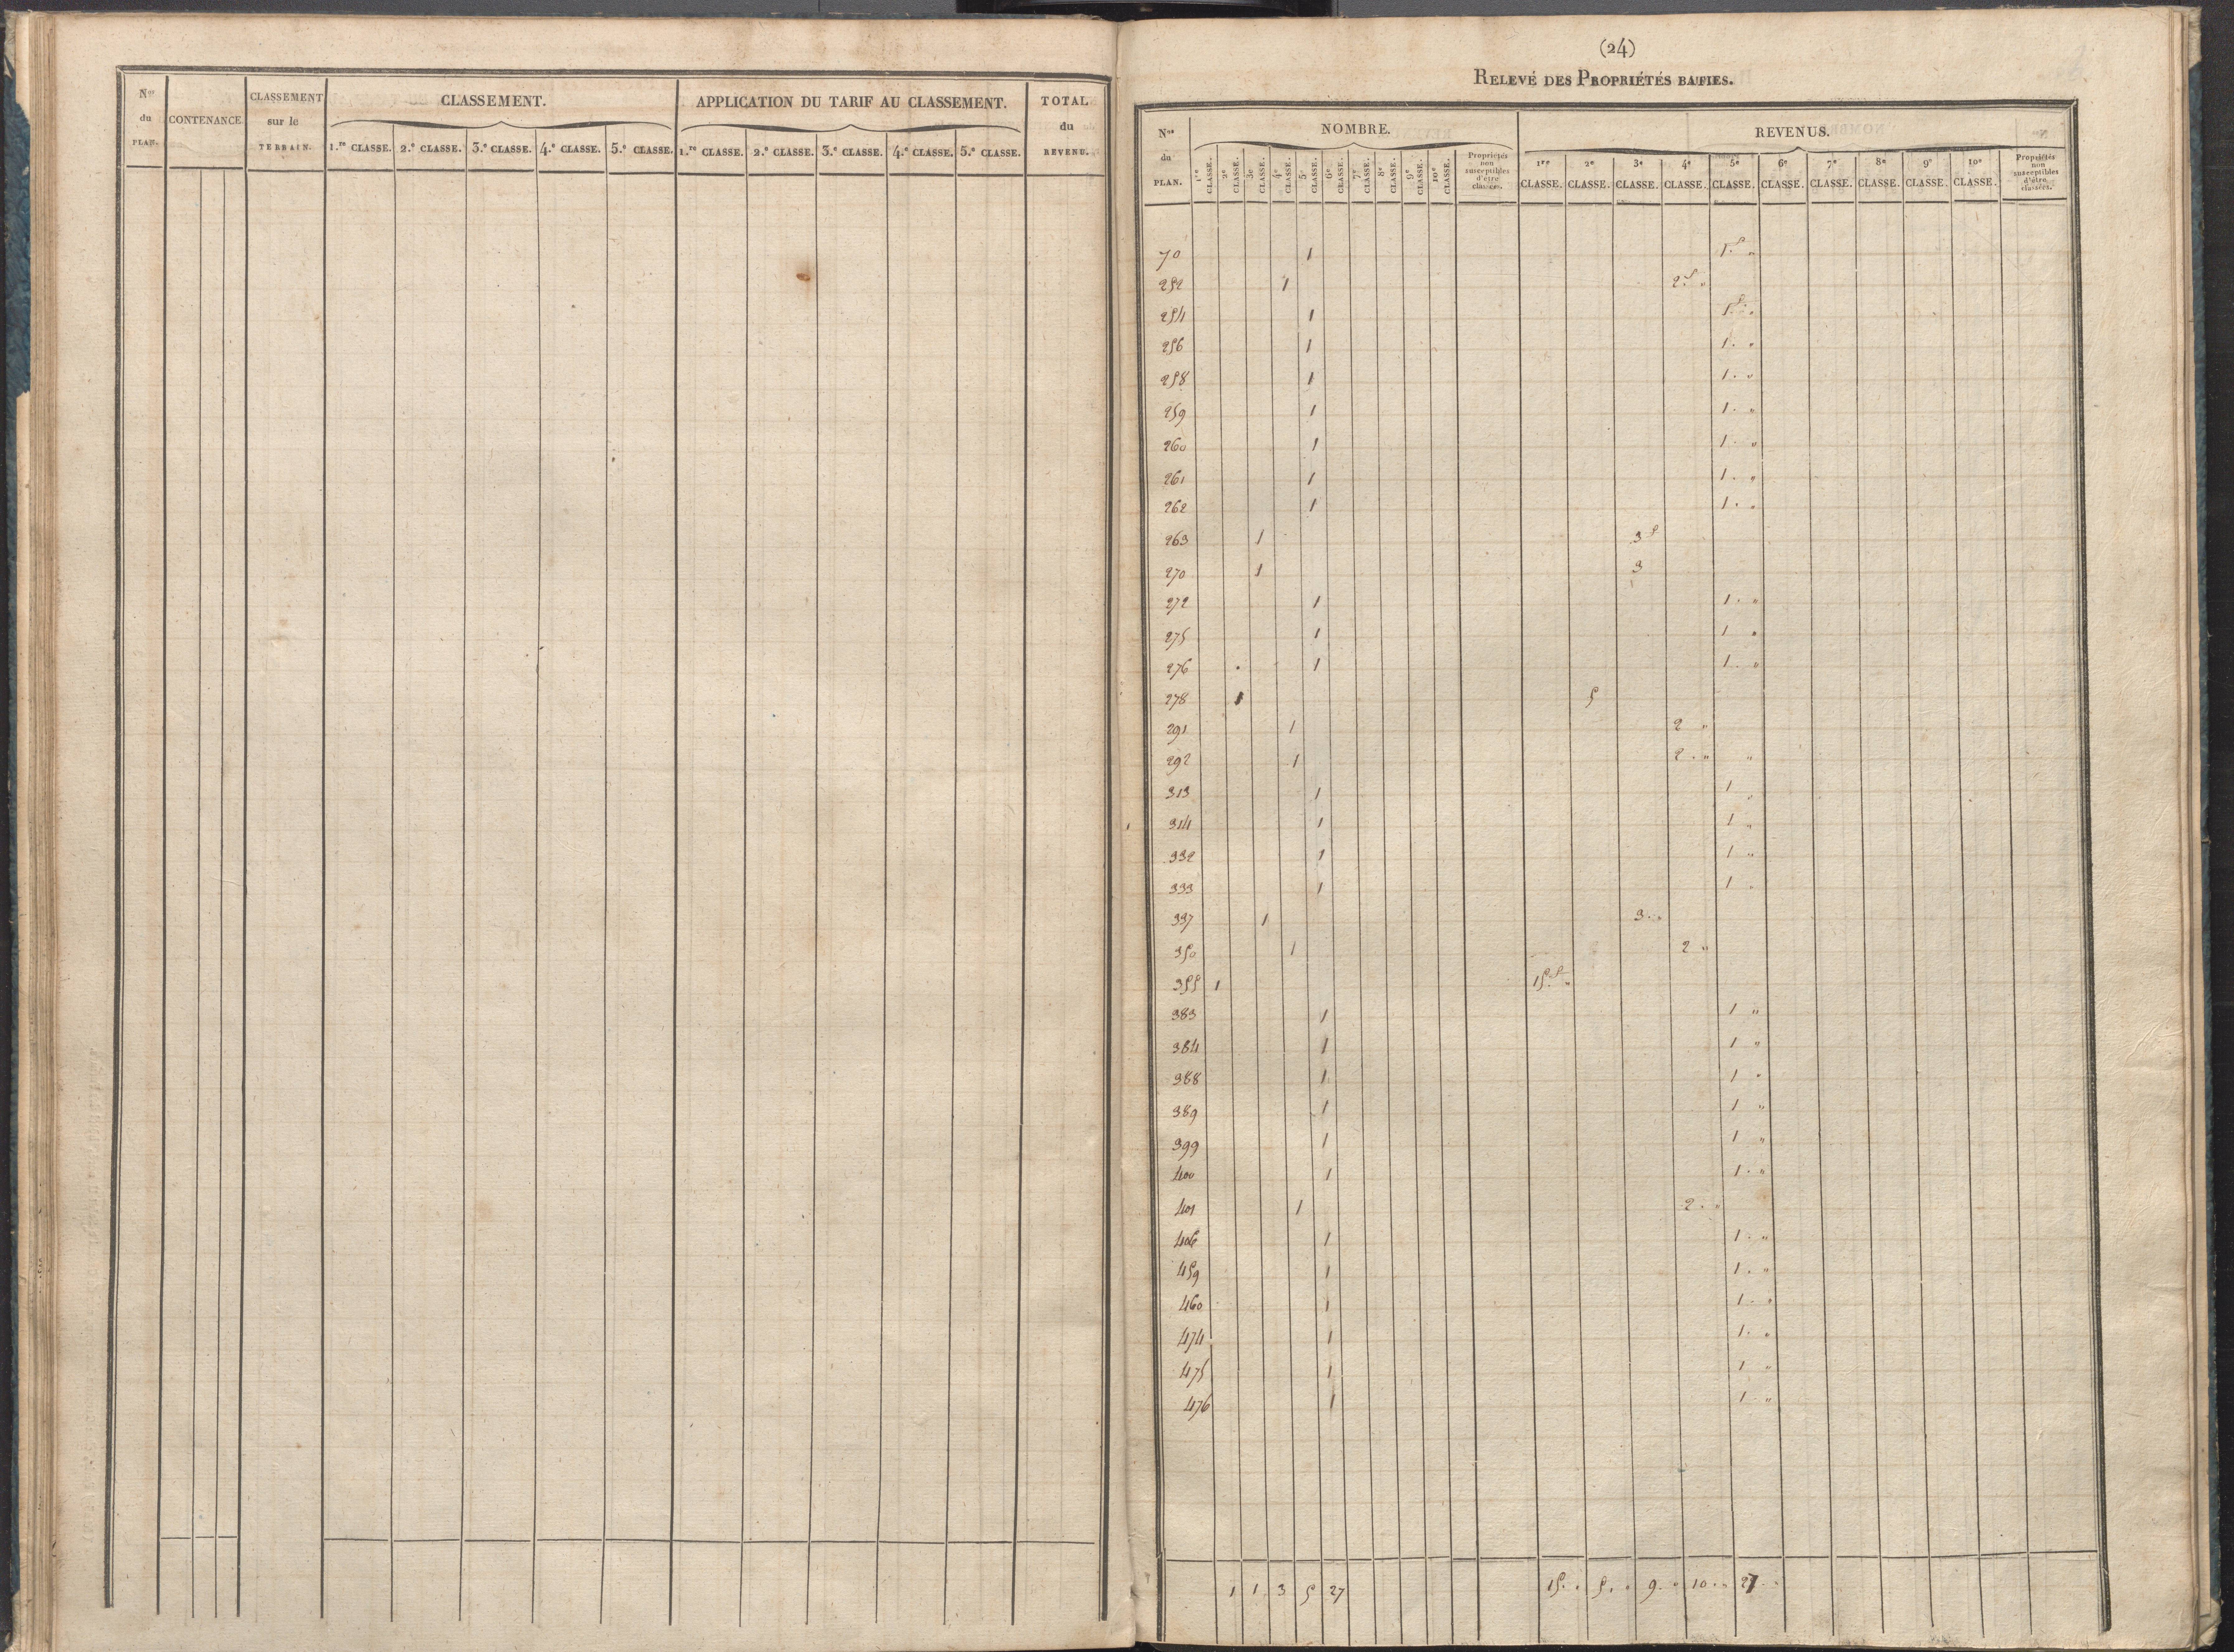 Nos du PLAN. CONTENANCE CLASSEMENT sur le TERRAIN. CLASSEMENT. APPLICATION DU TARIF AU CLASSEMENT. TOTAL du REVENU.
1.re CLASSE. 2.e CLASSE. 3.e CLASSE. 4.e CLASSE. 5.e CLASSE. 1.re CLASSE. 2.e CLASSE. 3.e CLASSE. 4.e CLASSE. 5.e CLASSE.
(24)
RELEVÉ DES PROPRIÉTÉS BATIES.
Nos du PLAN. NOMBRE. REVENUS.
1re CLASSE. 2e CLASSE. 3e CLASSE. 4e CLASSE. 5e CLASSE. 6e CLASSE. 7e CLASSE. 8e CLASSE. 9e CLASSE. 10e CLASSE. Propriétés non susceptibles d'être classées. 1re CLASSE. 2e CLASSE. 3e CLASSE. 4e CLASSE. 5e CLASSE. 6e CLASSE. 7e CLASSE. 8e CLASSE. 9e CLASSE. 10e CLASSE. Propriétés non susceptibles d'être classées.
70 1 1.f "
252 1 2.f "
254 1 1.f "
256 1 1. "
258 1 1. "
259 1 1. "
260 1 1. "
261 1 1. "
262 1 1. "
263 1 3f
270 1 3
272 1 1. "
275 1 1 "
276 1 1. "
278 1 5
291 1 2 "
292 1 2. " "
313 1 1 "
314 1 1 "
332 1 1 "
333 1 1 "
337 1 3. "
350 1 2 "
355 1 15.f "
383 1 1 "
384 1 1 "
388 1 1 "
389 1 1 "
399 1 1 "
400 1 1. "
401 1 2. "
406 1 1. "
459 1 1. "
460 1 1. "
474 1 1. "
475 1 1 "
476 1 1. "
1 1 3 5 27 15. " 5. " 9. " 10. " 27. "